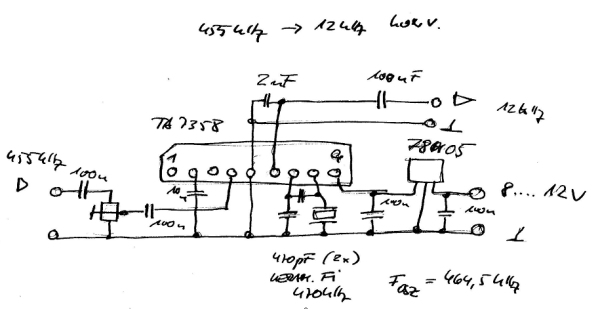 455 kHz → 12 kHz konv.
2 nF
100 nF
12 kHz
TA 7358
78L05
1
9
455 kHz
100n
10n
100n
100n
100n
8....12V
470pF (2x)
keram. Fi
470kHz
Fosz = 464,5 kHz